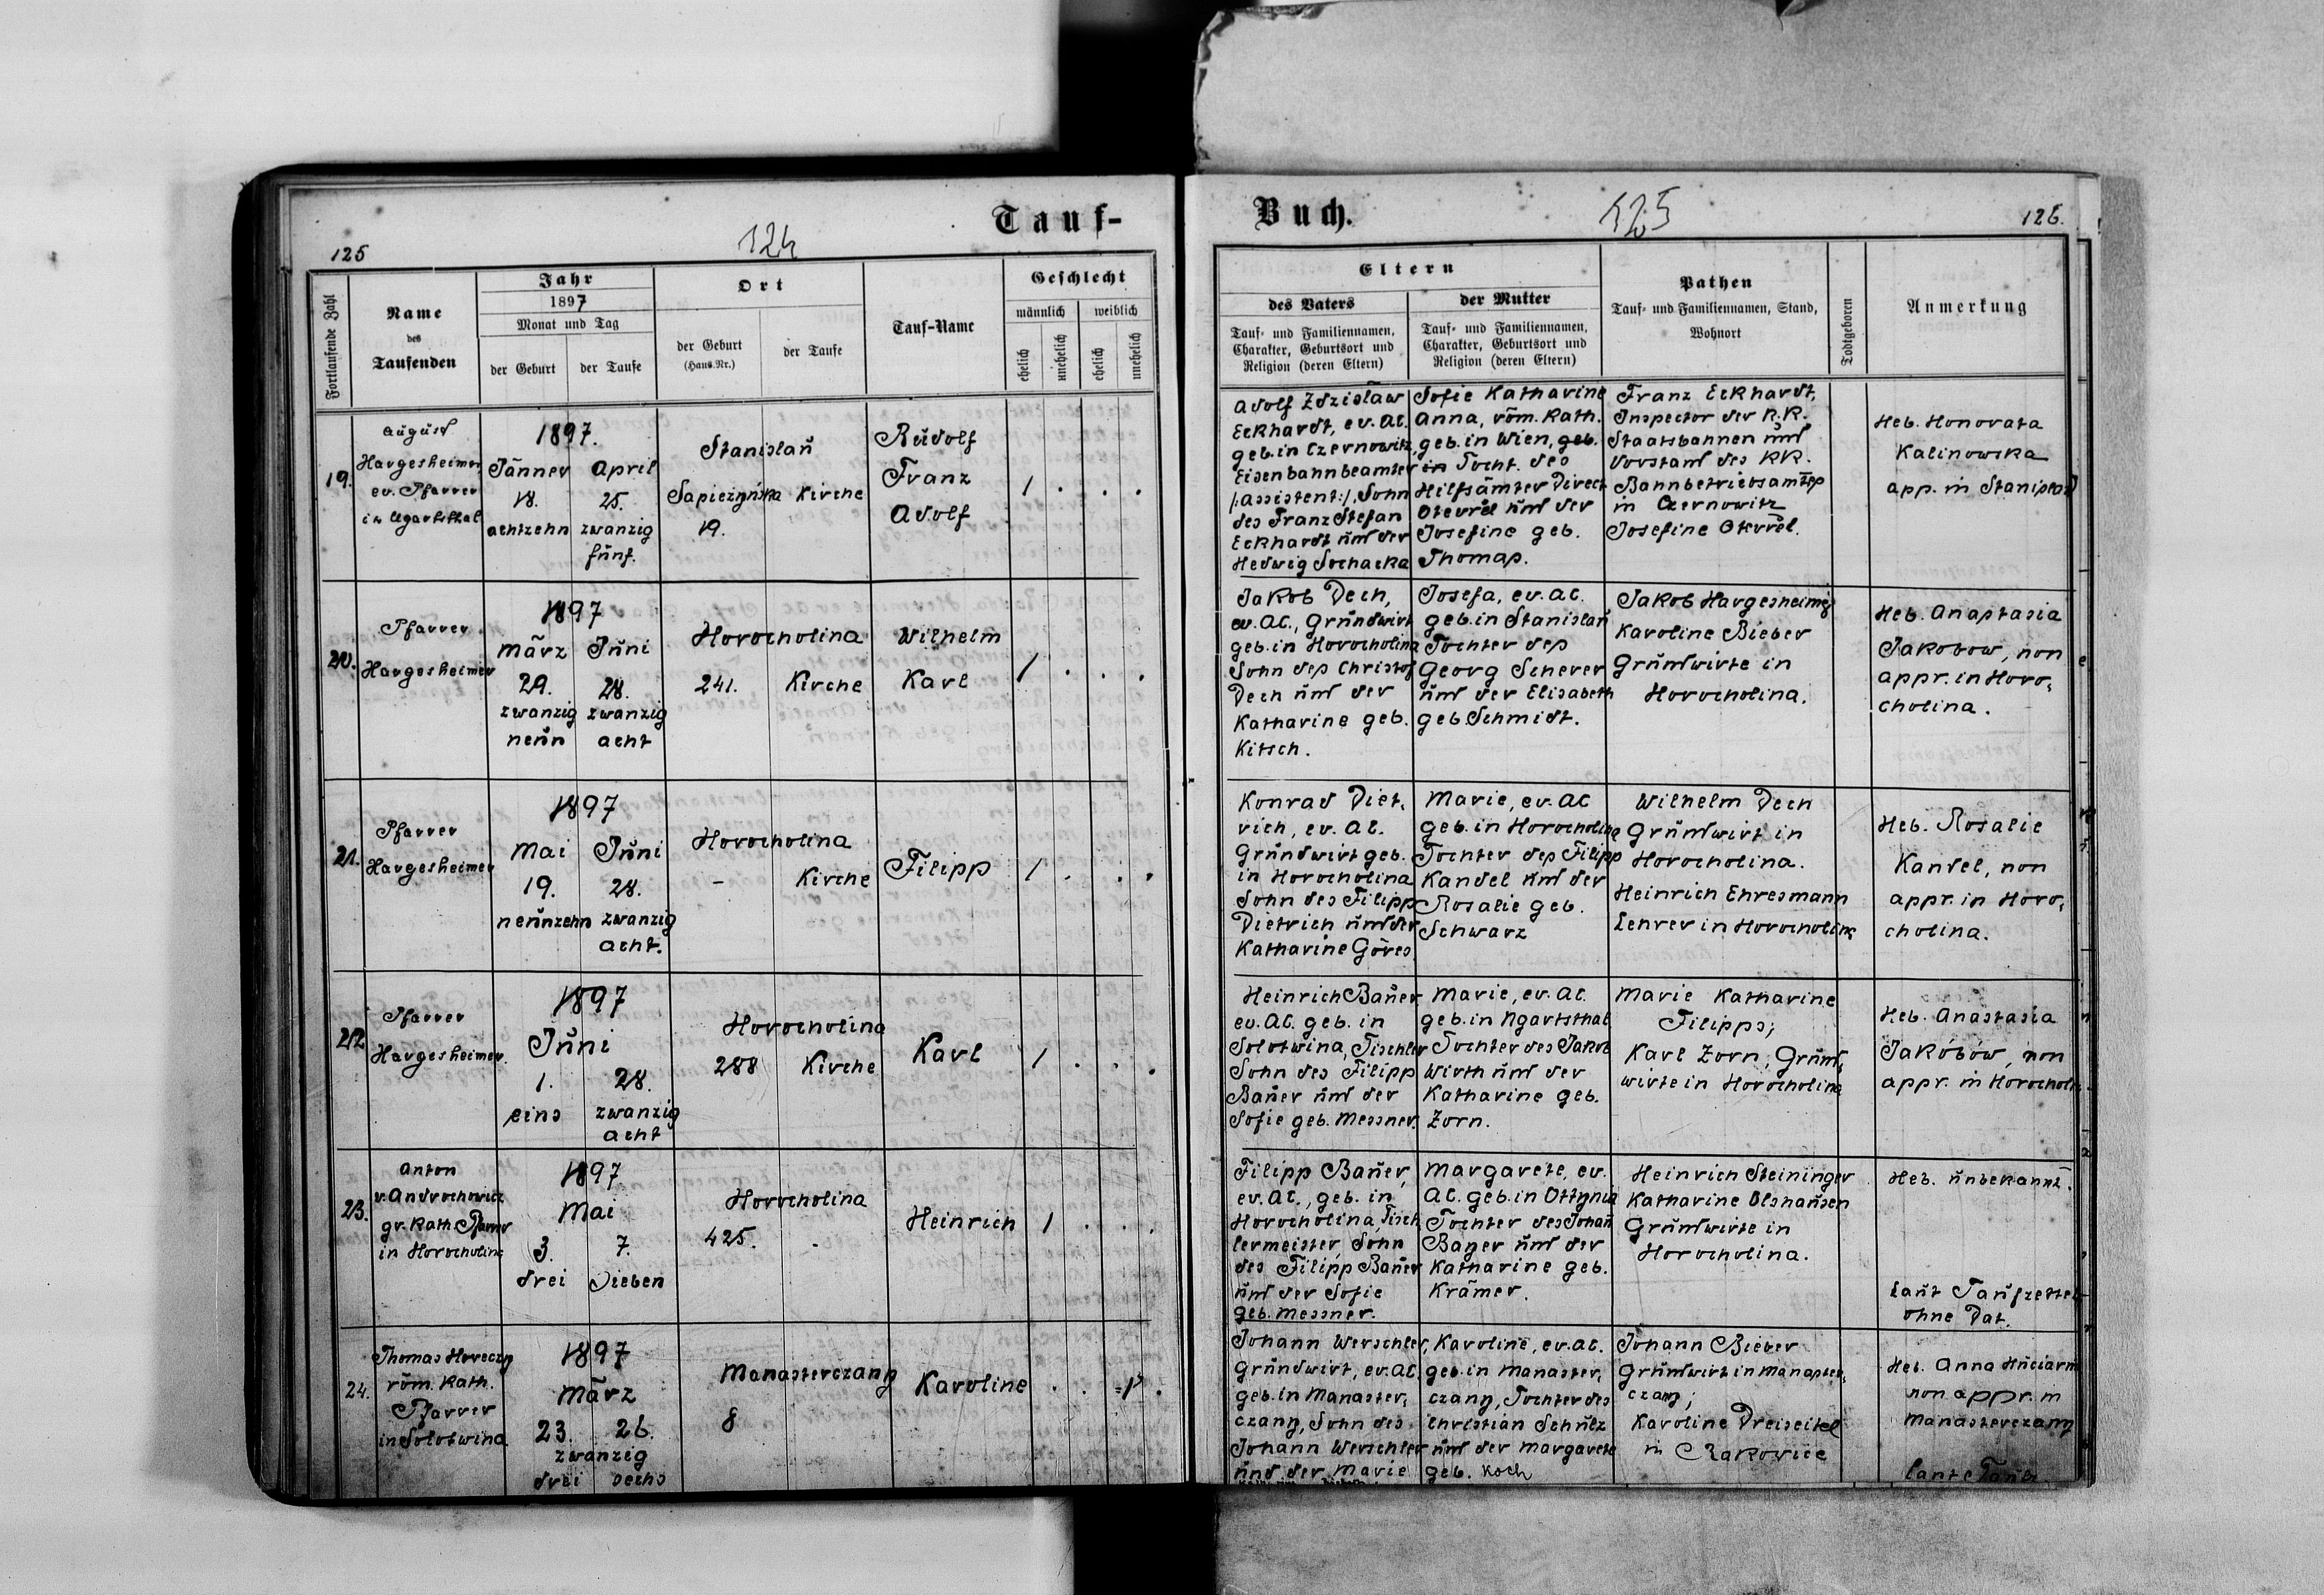 Tauf-
124
125
Fortlaufende Zahl
Name
des
Taufenden
Jahr
1897
Monat und Tag
der Geburt
der Taufe
Ort
der Geburt
(Haus-Nr.)
der Taufe
Tauf-Name
Geschlecht
männlich
weiblich
ehelich
unehelich
ehelich
unehelich
19.
August
Hargesheimer
ev. Pfarrer
in Ugartsthal
1897.
Jänner April
18. 25.
achtzehn zwanzig
fünf.
Stanislau
Sapiezyńska Kirche
19.
Rudolf
Franz
Adolf
1 . . .
20.
Pfarrer
Hargesheimer
1897
März Juni
29. 28.
zwanzig zwanzig
neun acht
Horocholina
241. Kirche
Wilhelm
Karl
1 . . .
21.
Pfarrer
Hargesheimer
1897
Mai Juni
19. 28.
neunzehn zwanzig
acht.
Horocholina
- Kirche
Filipp
1 . . .
22.
Pfarrer
Hargesheimer.
1897
Juni
1. 28.
eins zwanzig
acht
Horocholina
288 Kirche
Karl
1 . . .
23.
Anton
v. Androchowicz
gr. Kath. Pfarrer
in Horocholina
1897
Mai
3. 7.
drei Sieben
Horocholina
425. .
Heinrich
1 . . .
24.
Thomas
röm. Kath.
Pfarrer
in Solotwina.
1897
März
23. 26.
zwanzig
drei sechs
Manasterczany
8
Karoline
. . 1 .
Buch.
125
126.
Eltern
des Vaters
Tauf- und Familiennamen,
Charakter, Geburtsort und
Religion (deren Eltern)
der Mutter
Tauf- und Familiennamen,
Charakter, Geburtsort und
Religion (deren Eltern)
Pathen
Tauf- und Familiennamen, Stand,
Wohnort
Todtgeboren
Anmerkung
Adolf Zdzislaw
Eckhardt, ev. AC.
geb. in Czernowitz,
Eisenbahnbeamter
/:Assistent:/, Sohn
des Franz Stefan
Eckhardt und der
Hedwig Sochacka
Sofie Katharine
Anna, röm. Kath.
geb. in Wien, geb.
in Tocht. des
Hilfsämter Direct
Otevrèl und der
Josefine geb.
Thomas.
Franz Eckhardt,
Inspector der K.K.
Staatsbahnen und
Vorstand des KK.
Bahnbetriebsamtes
in Czernowitz
Josefine Otevrèl.
Heb. Honorata
Kalinowska
app. in Stanislau
Jakob Dech,
ev. AC., Grundwirt
geb. in Horocholina
Sohn des Christof
Dech und der
Katharine geb.
Kitsch.
Josefa, ev. AC.
geb. in Stanislau,
Tochter des
Georg Scherer
und der Elisabeth
geb Schmidt.
Jakob Hargesheimer
Karoline Bieber
Grundwirte in
Horocholina.
Heb. Anastasia
Jakobow, non
appr. in Horo,
cholina.
Konrad Diet,
rich, ev. AC.
Grundwirt geb.
in Horocholina
Sohn des Filipp
Dietrich und der
Katharine Göres
Marie, ev. AC
geb. in Horocholina
Tochter des Filipp
Kandel und der
Rosalie geb.
Schwarz
Wilhelm Dech
Grundwirt in
Horocholina.
Heinrich Ehresmann
Lehrer in Horocholina
Heb. Rosalie
Kandel, non
appr. in Horo,
cholina.
Heinrich Bauer
ev. AC. geb. in
Solotwina, Tischler
Sohn des Filipp
Bauer und der
Sofie geb. Messner.
Marie, ev. AC.
geb. in Ugartsthal
Tochter des Jakob
Wirth und der
Katharine geb.
Zorn.
Marie Katharine
Filipps;
Karl Zorn, Grund,
wirte in Horocholina
Heb. Anastasia
Jakóbów, non
appr. in Horochol
Filipp Bauer,
ev. AC., geb. in
Horocholina, Tisch
lermeister, Sohn
des Filipp Bauer
und der Sofie
geb. Messner.
Margarete, ev.
AC. geb. in Ottynia
Tochter des Johan
Bayer und der
Katharine geb.
Krämer.
Heinrich Steininger
Katharine Olshausen
Grundwirte in
Horocholina.
Heb. unbekannt.
Laut Taufzettel
ohne Dat.
Johann Werschler,
Grundwirt, ev. AC.
geb. in Manaster,
czany, Sohn des
Johann Werschler
und der Marie
Karoline, ev. AC.
geb. in Manaster,
czany, Tochter des
Christian Schulz
und der Margarete
geb. Koch
Johann Bieber
Grundwirt in Manaster,
czany;
Karoline Dreiseitel
in Rakowiec
Heb. Anna
non appr. in
Manasterczany